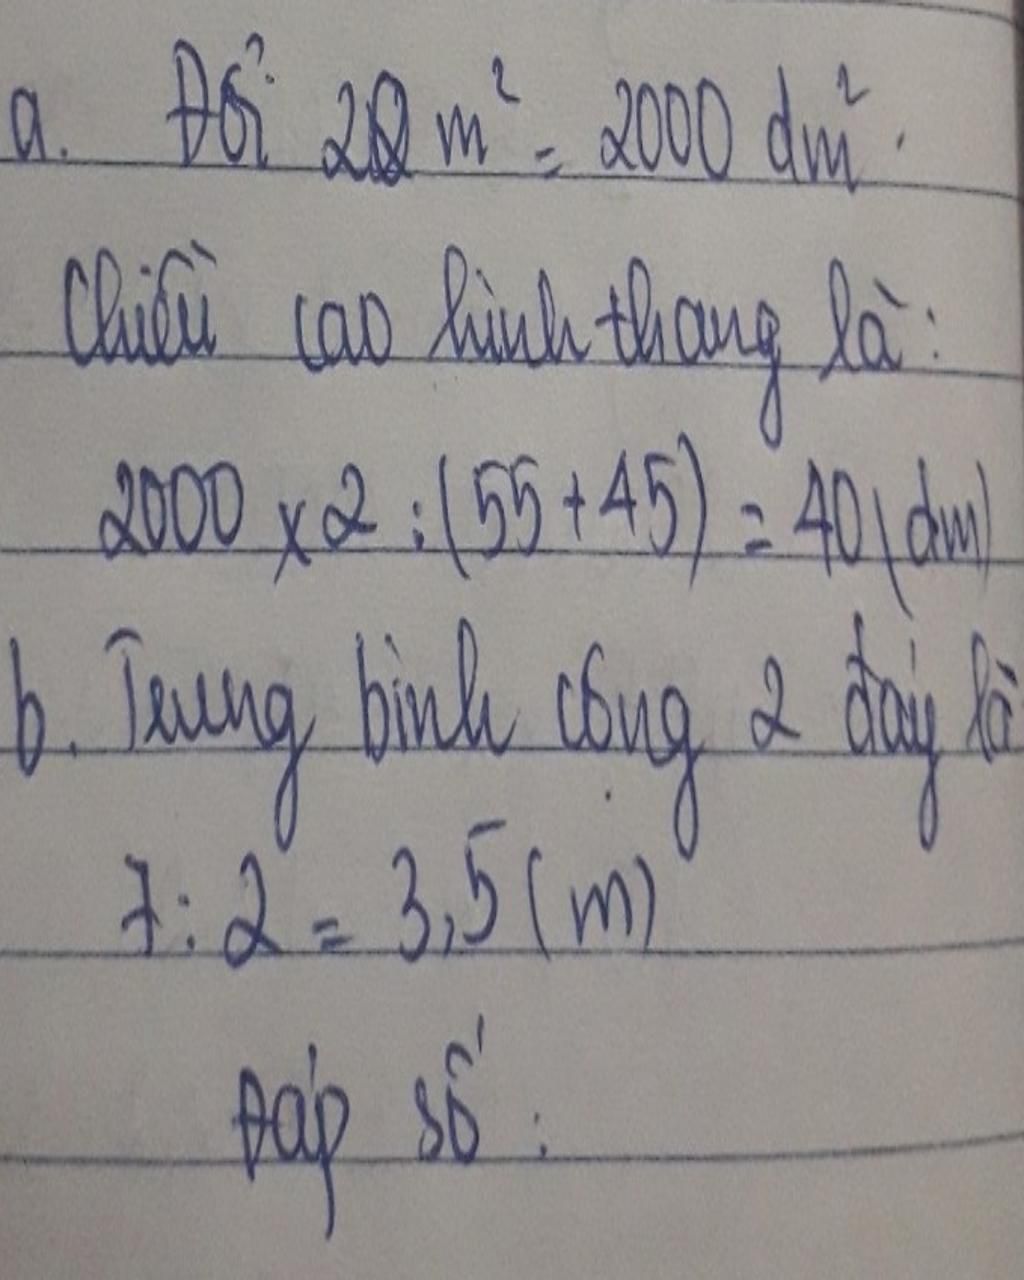 a. Đổi 20 m² = 2000 dm².
Chiều cao hình thang là:
2000 x 2 : (55 + 45) = 40 (dm)
b. Trung bình cộng 2 đáy là
7 : 2 = 3,5 (m)
Đáp số :